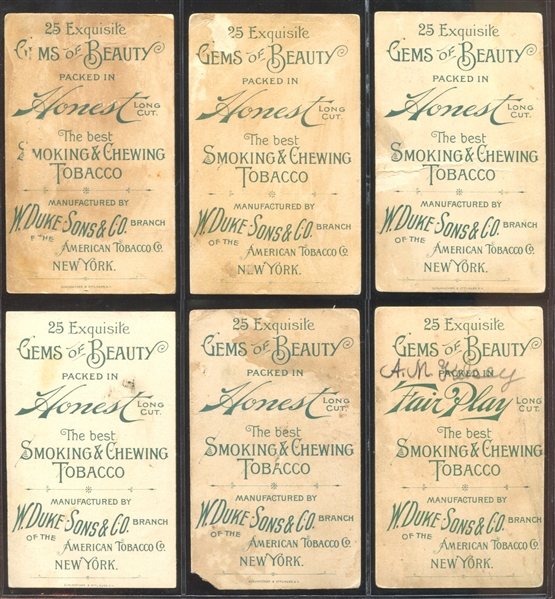 25 Exquisite
GEMS OF BEAUTY
PACKED IN
Honest LONG CUT.
The best
SMOKING & CHEWING
TOBACCO
MANUFACTURED BY
W. DUKE SONS & CO. BRANCH
OF THE AMERICAN TOBACCO Co.
NEW YORK.
25 Exquisite
GEMS OF BEAUTY
PACKED IN
Honest LONG CUT.
The best
SMOKING & CHEWING
TOBACCO
MANUFACTURED BY
W. DUKE SONS & CO. BRANCH
OF THE AMERICAN TOBACCO Co.
NEW YORK.
25 Exquisite
GEMS OF BEAUTY
PACKED IN
Honest LONG CUT.
The best
SMOKING & CHEWING
TOBACCO
MANUFACTURED BY
W. DUKE SONS & CO. BRANCH
OF THE AMERICAN TOBACCO Co.
NEW YORK.
25 Exquisite
GEMS OF BEAUTY
PACKED IN
Honest LONG CUT.
The best
SMOKING & CHEWING
TOBACCO
MANUFACTURED BY
W. DUKE SONS & CO. BRANCH
OF THE AMERICAN TOBACCO Co.
NEW YORK.
25 Exquisite
GEMS OF BEAUTY
PACKED IN
Honest LONG CUT.
The best
SMOKING & CHEWING
TOBACCO
MANUFACTURED BY
W. DUKE SONS & CO. BRANCH
OF THE AMERICAN TOBACCO Co.
NEW YORK.
25 Exquisite
GEMS OF BEAUTY
A. M.
PACKED IN
Fair Play LONG CUT.
The best
SMOKING & CHEWING
TOBACCO
MANUFACTURED BY
W. DUKE SONS & CO. BRANCH
OF THE AMERICAN TOBACCO Co.
NEW YORK.